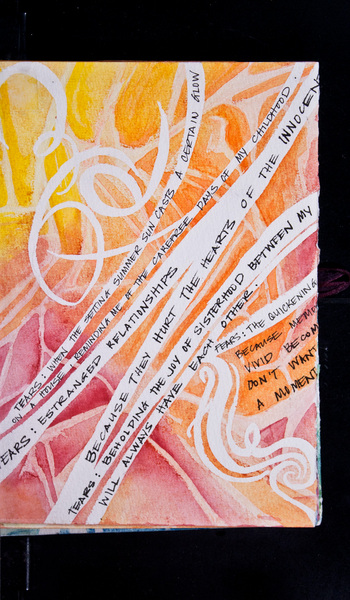 TEARS: WHEN THE SETTING SUMMER SUN CASTS A CERTAIN GLOW
ON A HOUSE: REMINDING ME OF THE CAREFREE DAYS OF MY CHILDHOOD.
TEARS: ESTRANGED RELATIONSHIPS
BECAUSE THEY HURT THE HEARTS OF THE INNOCEN
TEARS: BEHOLDING THE JOY OF SISTERHOOD BETWEEN MY
WILL ALWAYS HAVE EACH OTHER.
TEARS: THE QUICKENING
BECAUSE
VIVID BECOM
DON'T WANT
A MOMENT